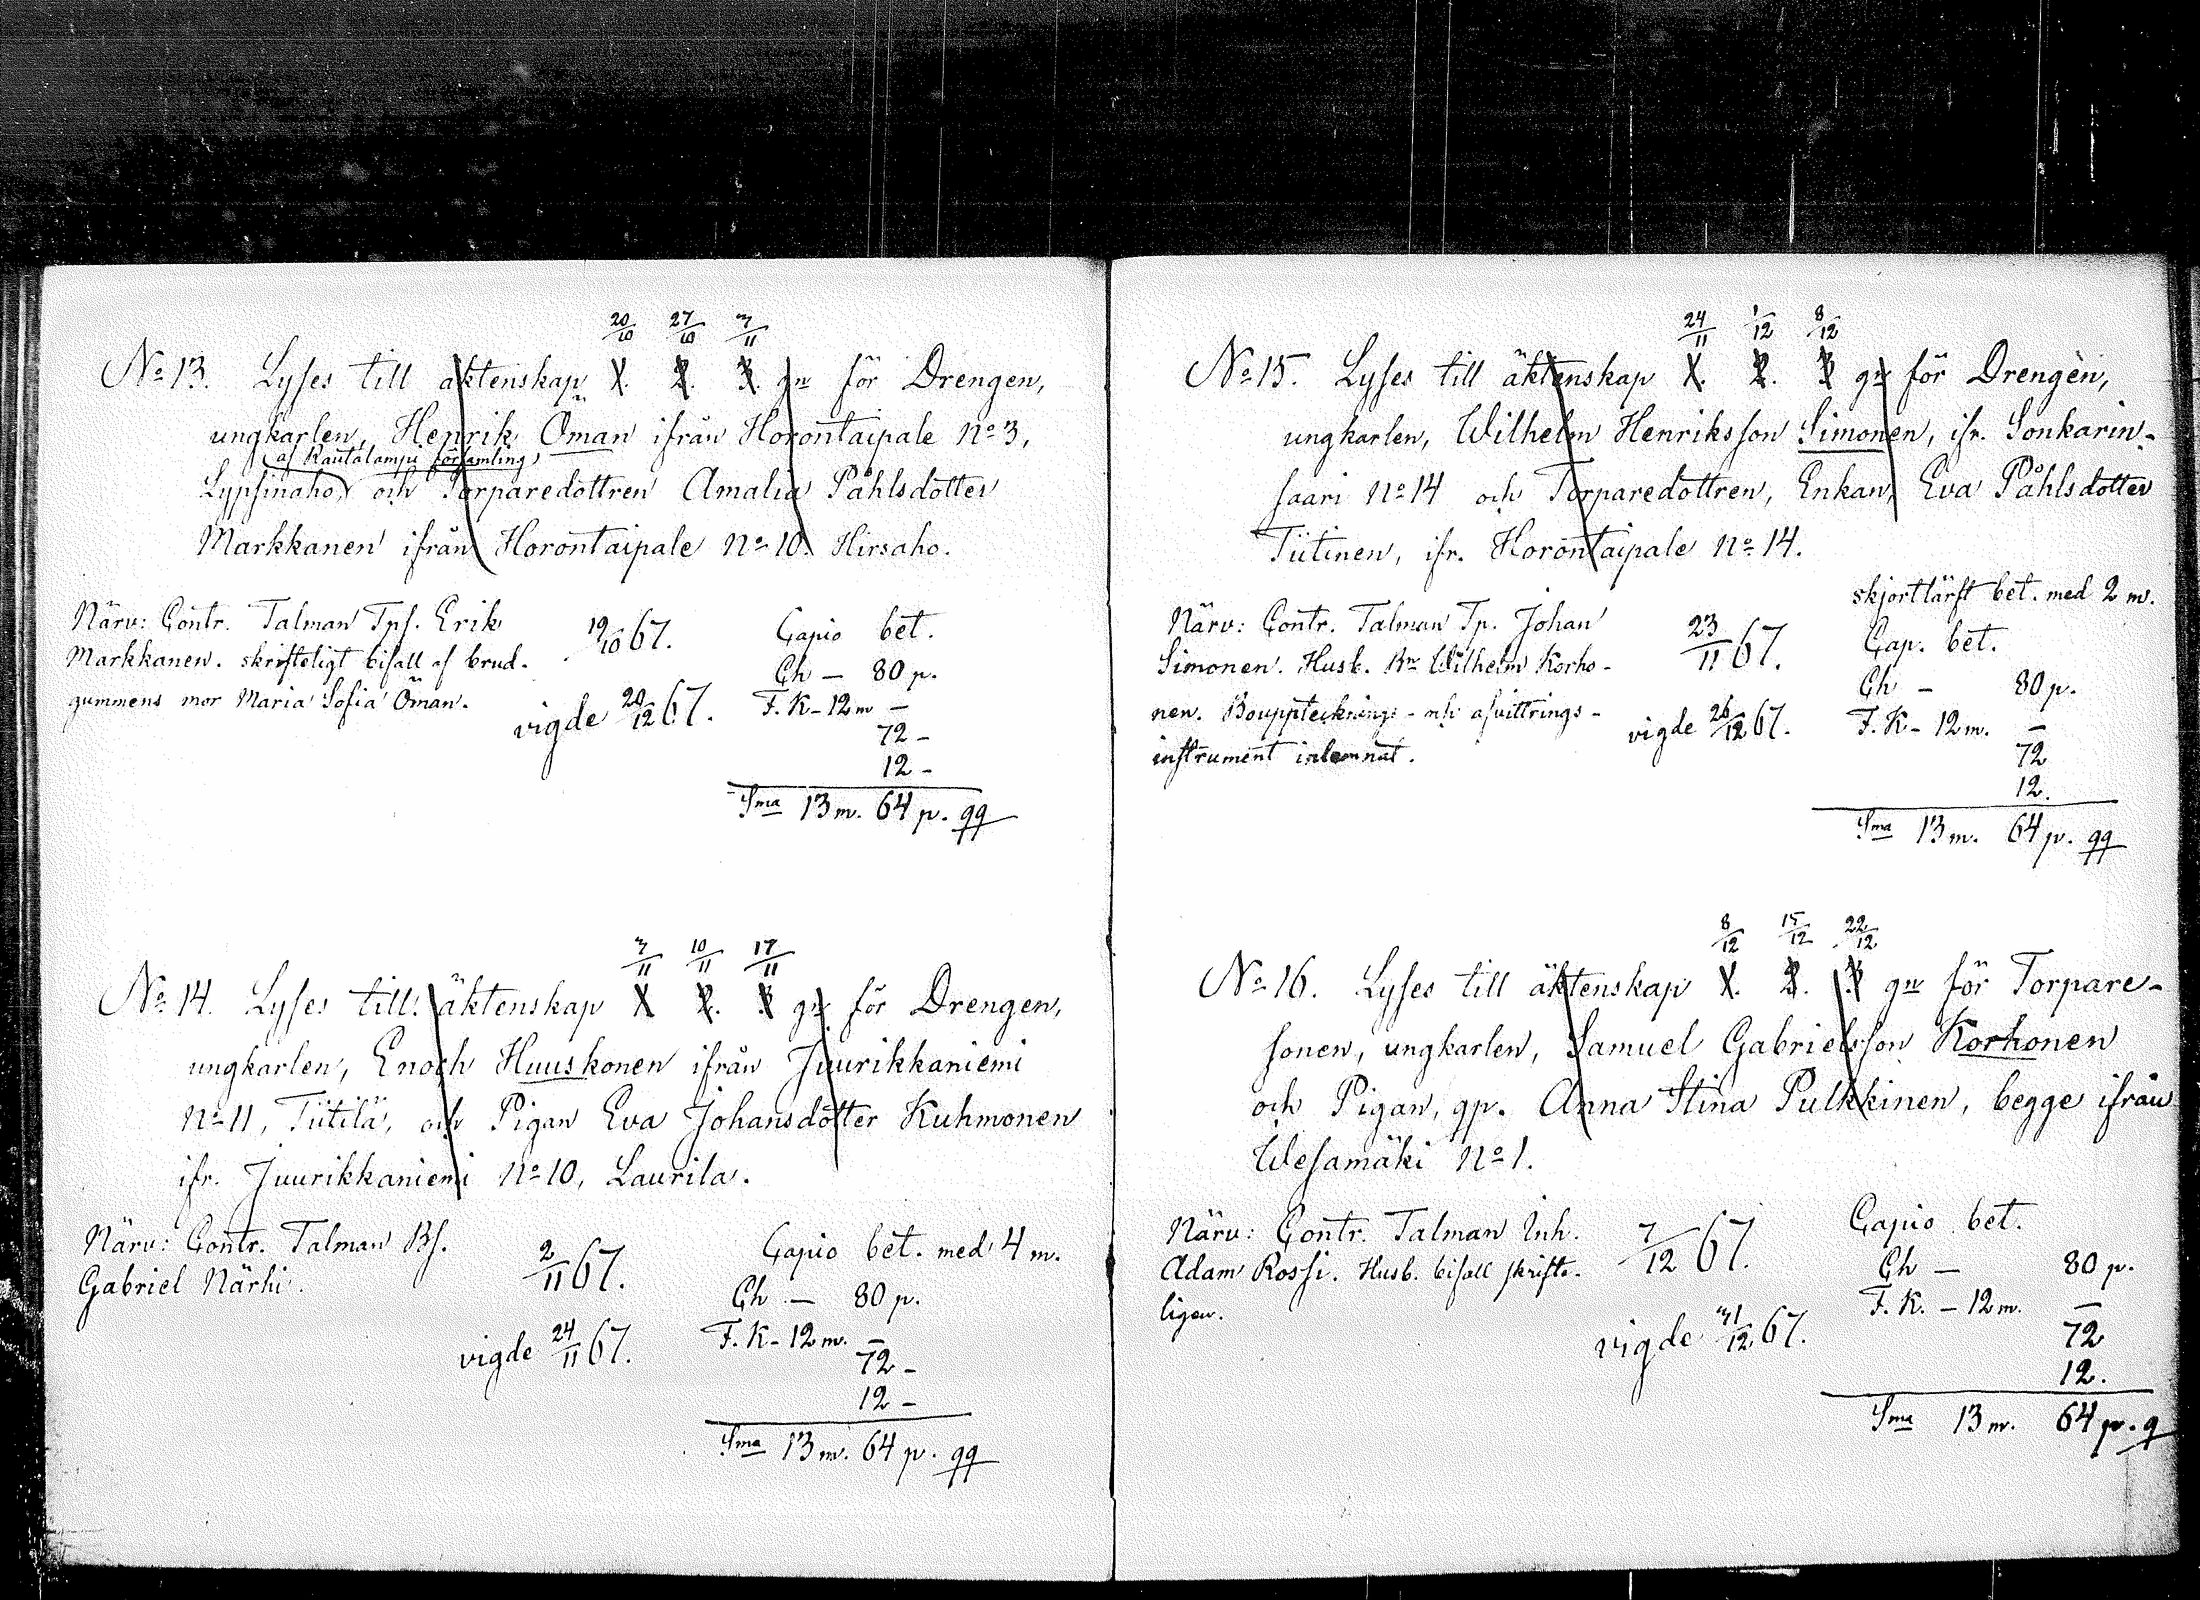 20/10 27/10 3/11
No 13. Lyses till äktenskap 1. 2. 3. gn för Drengen,
ungkarlen, Henrik Öman ifrån Horontaipale No 3,
(af Rautalampi församling)
Lypsinaho, och Torparedottren Amalia Påhlsdotter
Markkanen ifrån Horontaipale No 10. Hirsaho.
Närv: Contr. Talman Tps. Erik
Markkanen. skrifteligt bifall af brud-
gummens mor Maria Sofia Öman.
19/10 67.
vigde 20/12 67.
Capio bet.
Ch — 80 p.
F. K - 12 m —
72 -
12 -
Sma 13 m. 64 p. qq
3/11 10/11 17/11
No 14. Lyses till äktenskap 1 2. 3. gn för Drengen,
ungkarlen, Enoch Huuskonen ifrån Juurikkaniemi
No 11, Tiitilä, och Pigan Eva Johansdotter Kuhmonen
ifr. Juurikkaniemi No 10, Laurila.
Närv: Contr. Talman Bs.
Gabriel Närhi.
2/11 67.
vigde 24/11 67.
Capio bet. med 4 m.
Ch — 80 p.
F. K - 12 m. —
72 -
12 -
Sma 13 m. 64 p. qq
24/11 1/12 8/12
No 15. Lyses till äktenskap 1. 2. 3 gn för Drengen,
ungkarlen, Wilhelm Henriksson Simonen, ifr. Sonkarin-
saari No 14 och Torparedottren, Enkan, Eva Påhlsdotter
Tiitinen, ifr. Horontaipale No 14.
Närv: Contr. Talman Tp. Johan
Simonen. Husb. Bn Wilhelm Korho-
nen. Boupptecknings- och afvittrings-
instrument inlemnat.
23/11 67.
vigde 26/12 67.
skjorttärft bet. med 2 m.
Cap. bet.
Ch - 80 p.
F. K - 12 m. —
72
12.
Sma 13 m. 64 p. qq
8/12 15/12 22/12
No 16. Lyses till äktenskap 1. 2. 3 gn för Torpare-
sonen, ungkarlen, Samuel Gabrielsson Korhonen
och Pigan, qp. Anna Stina Pulkkinen, begge ifrån
Wesamäki No 1.
Närv: Contr. Talman Inh.
Adam Rossi. Husb. bifall skrifte-
ligen.
7/12 67.
vigde 31/12 67.
Capio bet.
Ch — 80 p.
F. K. - 12 m. —
72
12.
Sma 13 m. 64 p. q